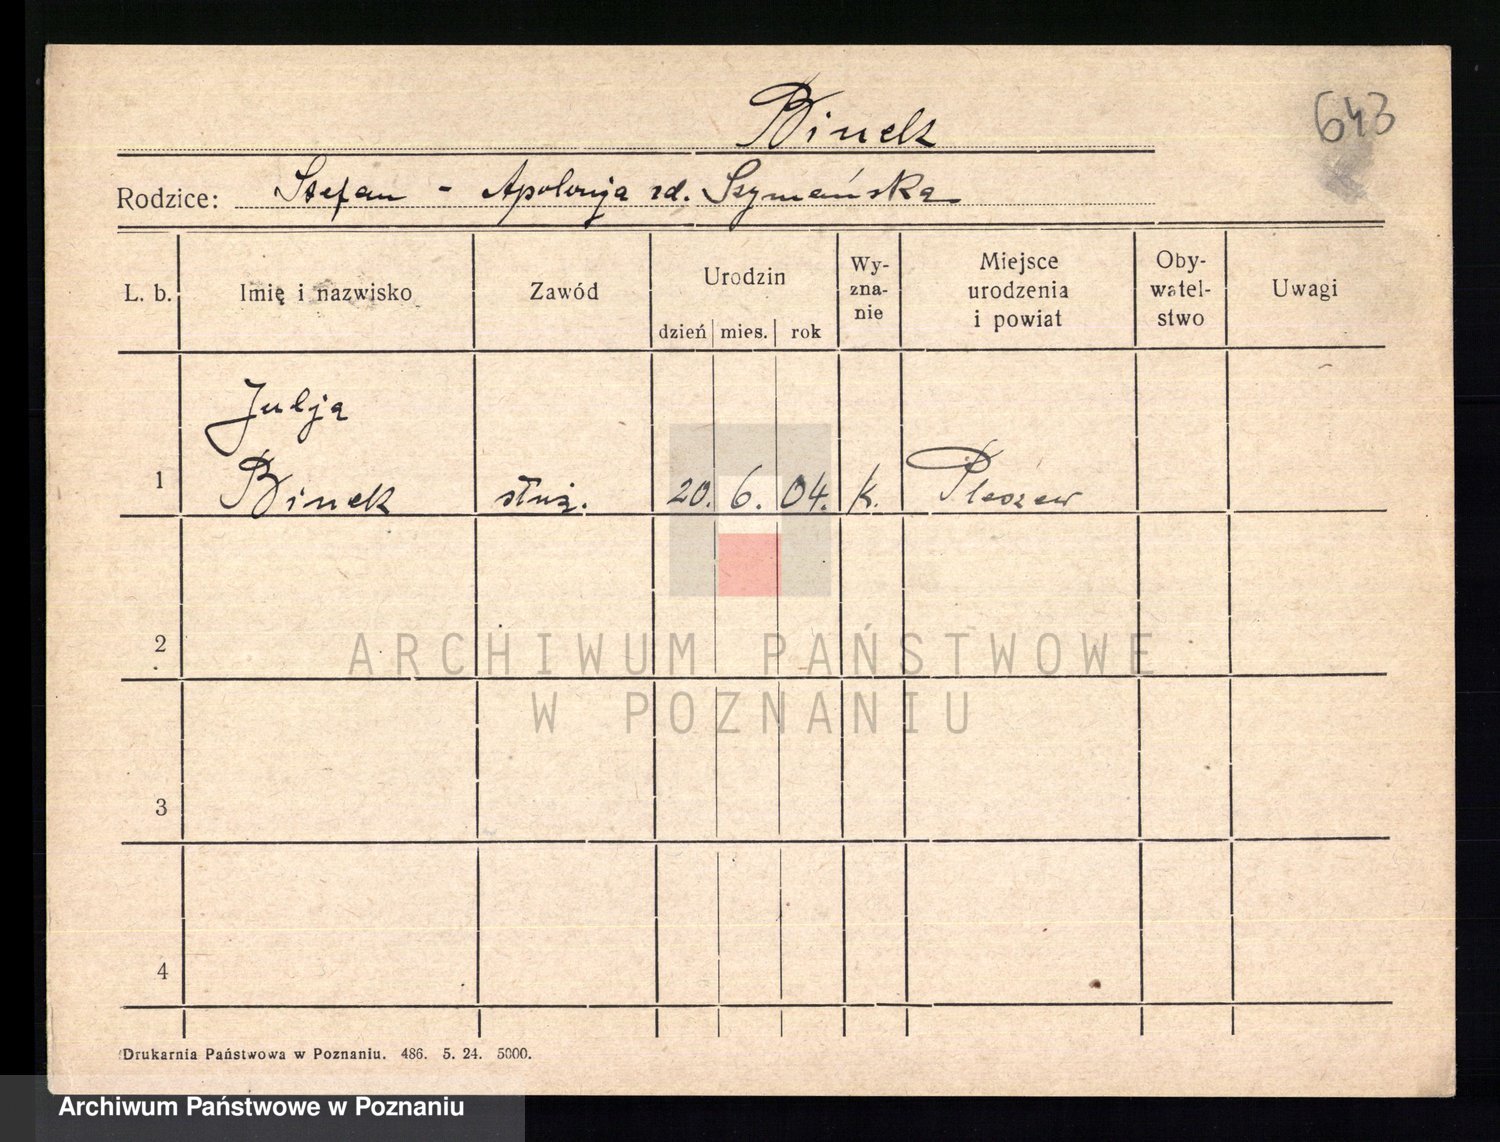 Binek
643
Rodzice: Stefan - Apolonja zd. Szymańska
L. b.
Imię i nazwisko
Zawód
Urodzin
dzień mies. rok
Wy-
zna-
nie
Miejsce
urodzenia
i powiat
Oby-
watel-
stwo
Uwagi
Julja
1 Binek służ. 20. 6. 04. k. Pleszew
2
ARCHIWUM PAŃSTWOWE
W POZNANIU
3
4
Drukarnia Państwowa w Poznaniu. 486. 5. 24. 5000.
Archiwum Państwowe w Poznaniu